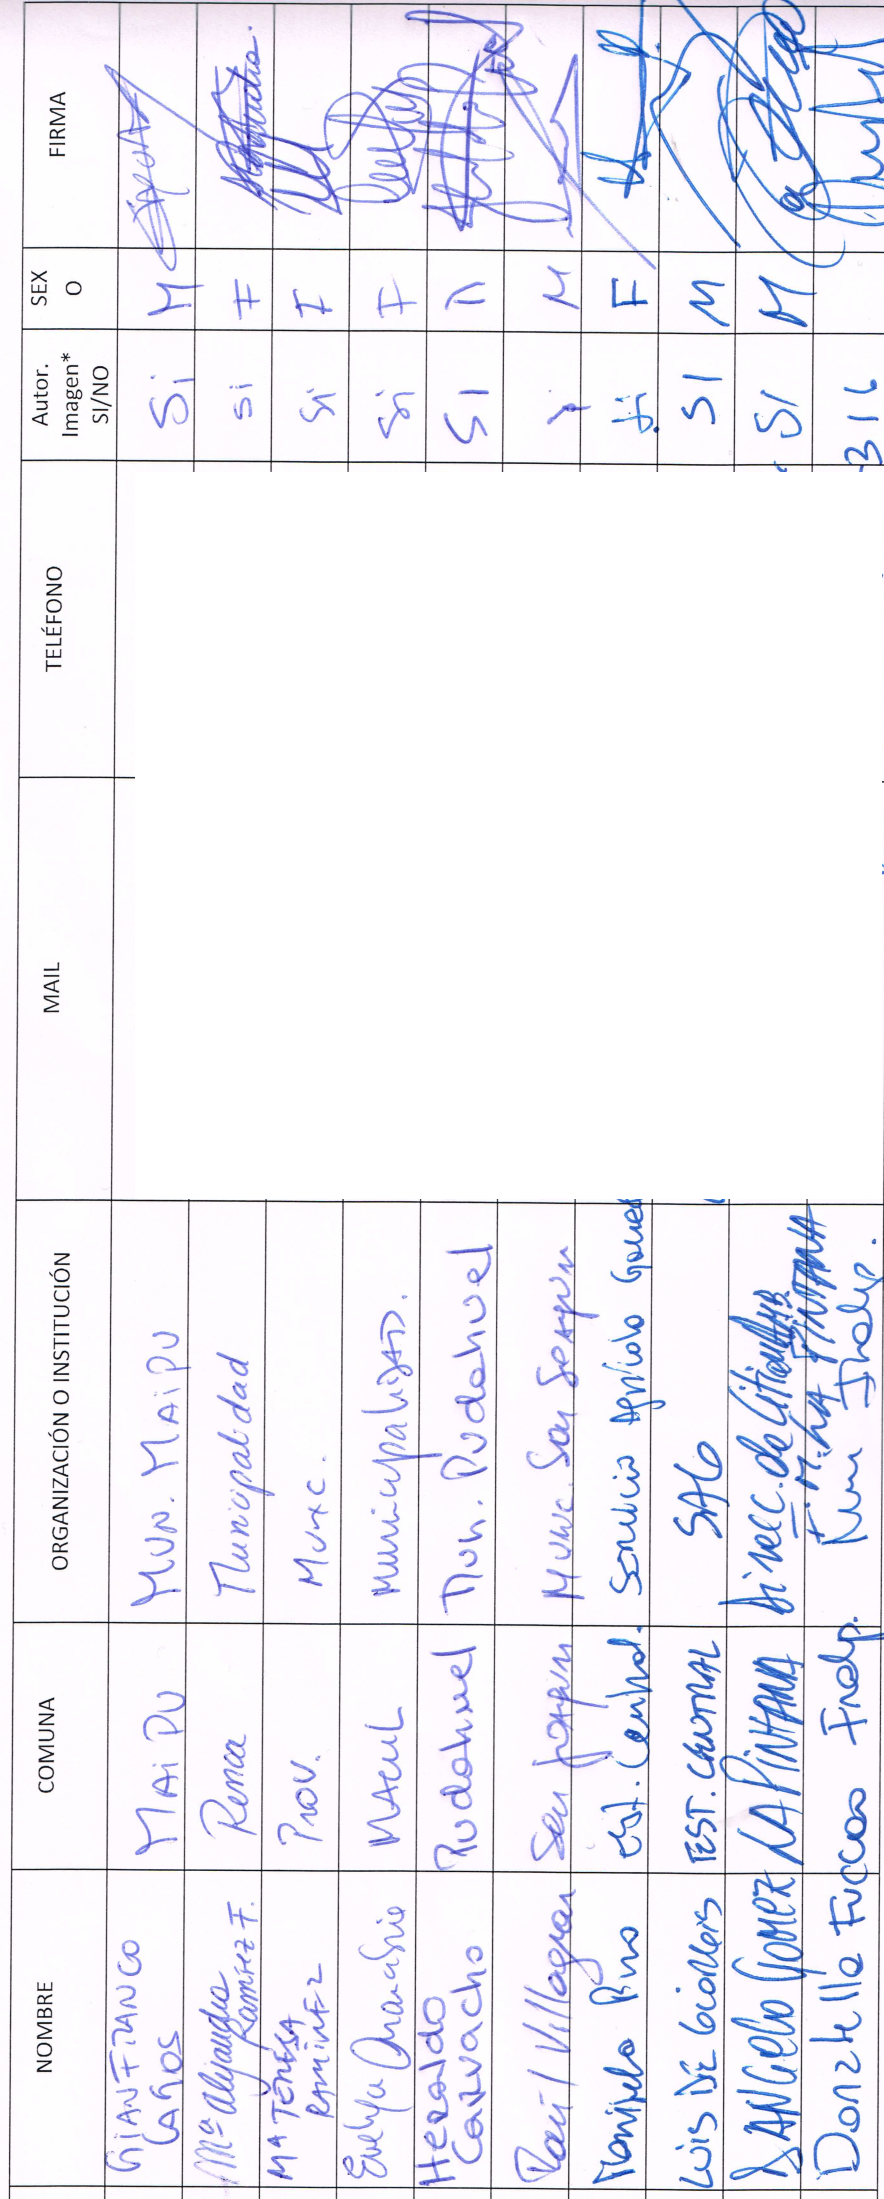 NOMBRE COMUNA ORGANIZACIÓN O INSTITUCIÓN MAIL TELÉFONO Autor. Imagen* SI/NO SEX O FIRMA
GIANFRANCO LAGOS MAIPU MUN. MAIPU Si M
Mª Alejandra Ramírez F. Renca Municipalidad si F
Mª TERESA RAMIREZ Prov. Munic. Si F
Evelyn MACUL Municipalidad. Si F
Heraldo Carvacho Pudahuel Mun. Pudahuel SI M
Raúl Villagran San Joaquin Munic. San Joaquin M
Pino est. Central. Servicio Agricola Ganad Si F
LUIS DE EST. CENTRAL SAG SI M
DANGELO GOMEZ LA PINTANA Direcc. de I.M. LA PINTANA SI M
Indep. Indep. 316